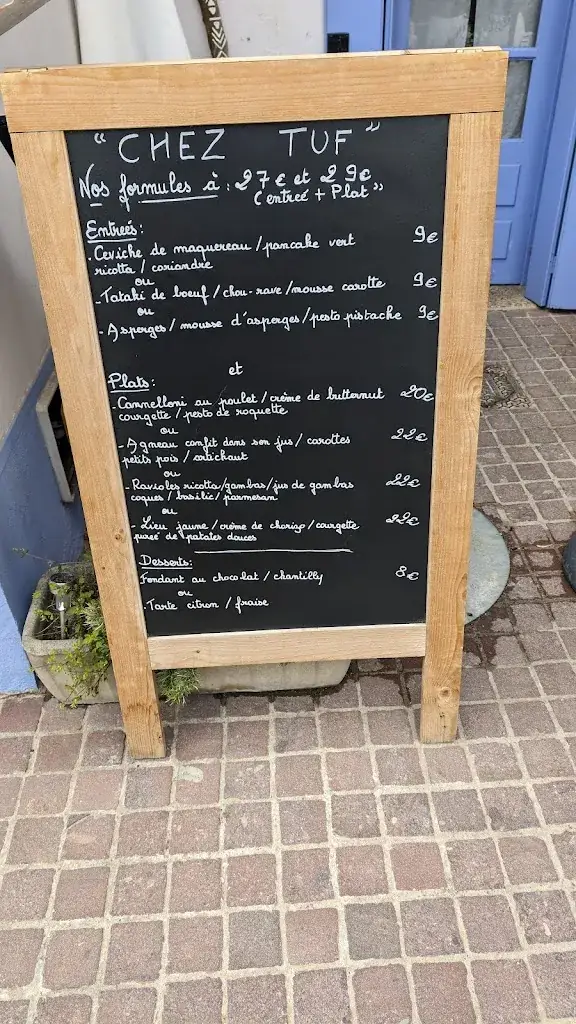 "CHEZ TUF"
Nos formules à : 27€ et 29€
(entrée + Plat"
Entrées :
- Ceviche de maquereau / pancake vert 9€
ricotta / coriandre
ou
- Tataki de boeuf / chou-rave / mousse carotte 9€
ou
- Asperges / mousse d'asperges / pesto pistache 9€
et
Plats :
- Cannelloni au poulet / crème de butternut 20€
courgette / pesto de roquette
ou
- Agneau confit dans son jus / carottes 22€
petits pois / artichaut
ou
- Ravioles ricotta/gambas/jus de gambas 22€
coques / basilic / parmesan
ou
- Lieu jaune / crème de chorizo / courgette 22€
purée de patates douces
Desserts :
Fondant au chocolat / chantilly 8€
ou
- Tarte citron / fraise